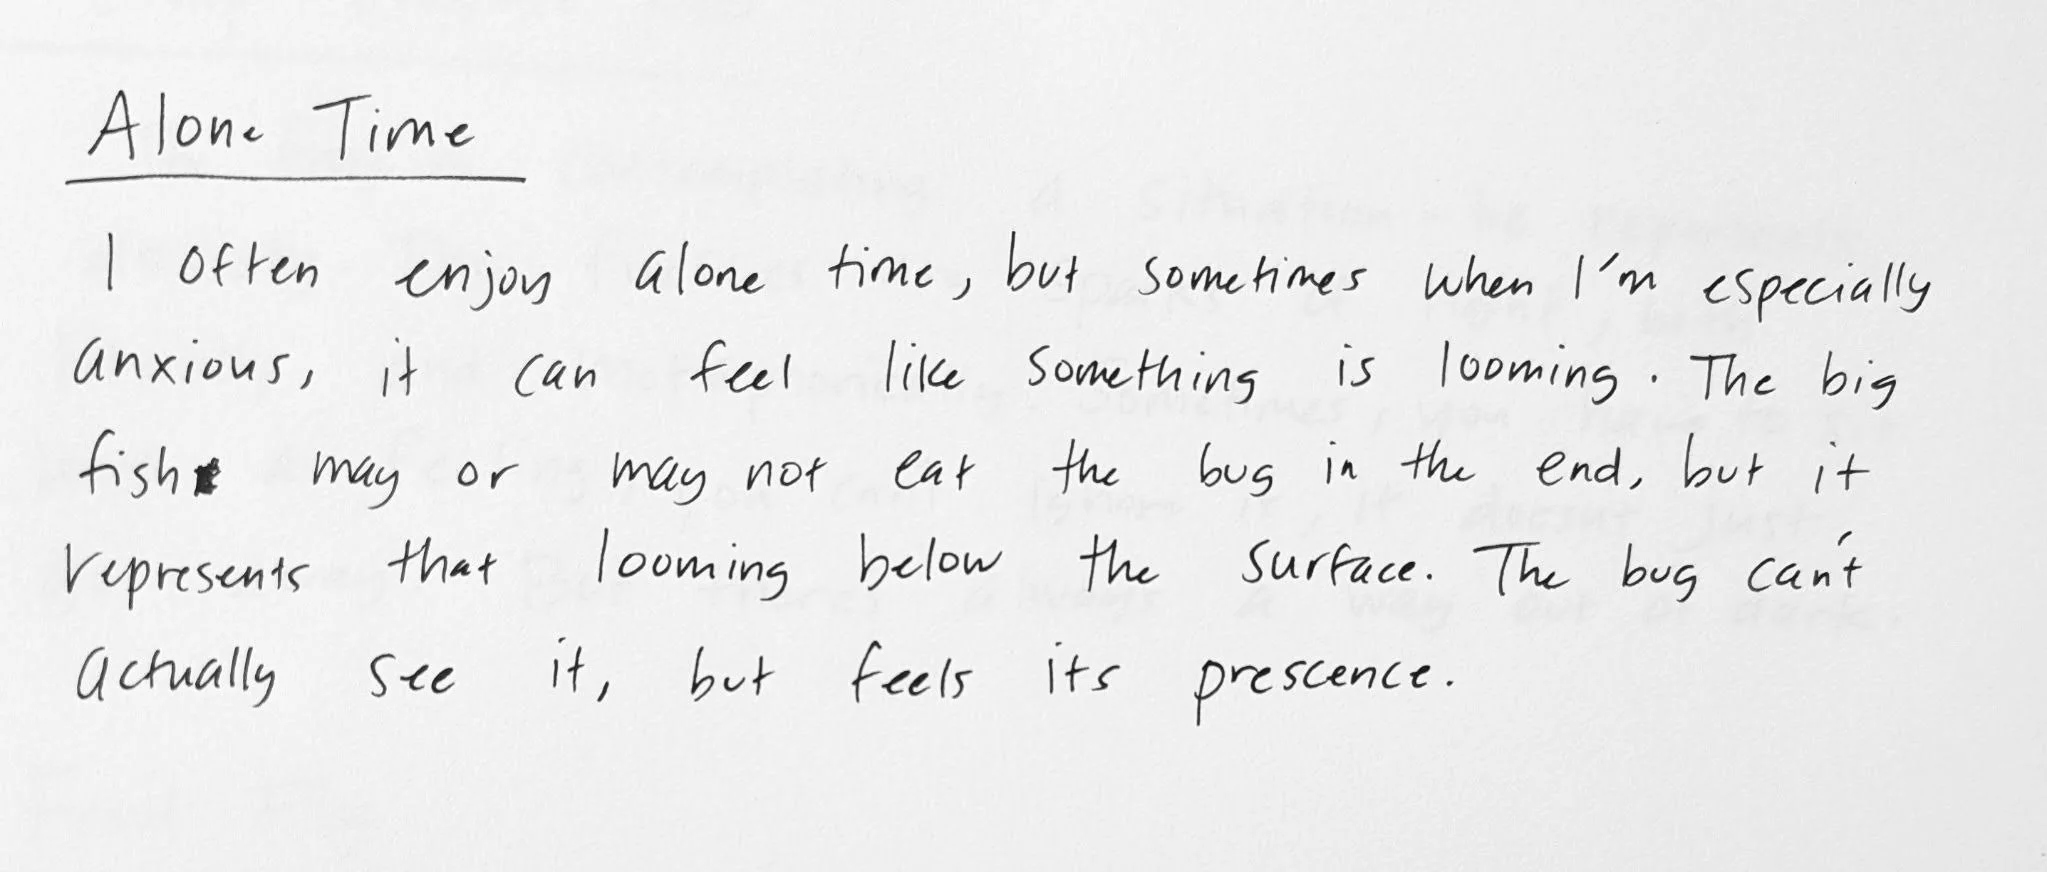 Alone Time
I often enjoy alone time, but sometimes when I'm especially
anxious, it can feel like something is looming. The big
fish may or may not eat the bug in the end, but it
represents that looming below the surface. The bug can't
actually see it, but feels its prescence.